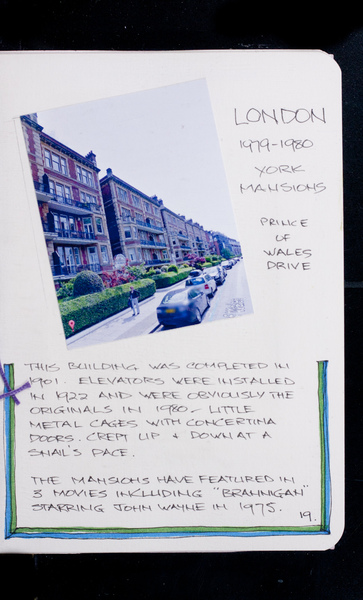 LONDON
1979-1980
YORK
MANSIONS
PRINCE
OF
WALES
DRIVE
THIS BUILDING WAS COMPLETED IN
1901. ELEVATORS WERE INSTALLED
IN 1922 AND WERE OBVIOUSLY THE
ORIGINALS IN 1980 - LITTLE
METAL CAGES WITH CONCERTINA
DOORS. CREPT UP + DOWN AT A
SNAIL'S PACE.
THE MANSIONS HAVE FEATURED IN
3 MOVIES INCLUDING "BRANNIGAN"
STARRING JOHN WAYNE IN 1975.
19.